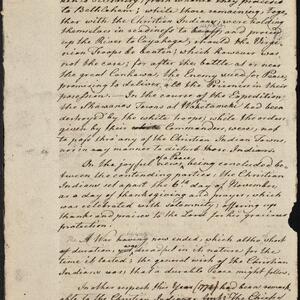 to Bethlehem; while those remaining; Toge-
ther with the Christian Indians, were holding
themselves in readiness to break off, and proceed
up the River to Cayahaga, should the Virgi-
nian Troops be beaten; which however was
not the case; for after the battle at or near
the great Canhawa, the Enemy sued for Peace,
promising to deliver all the Prisoners in their
possession.— In the course of the Expedition
the Shawanos Towns at Waketameki had been
destroyed by the white troops; while the orders
given by their Commanders, were; not
to pass thro any of the Christian Indian Towns,
nor in any manner to disturb those Indians.
On the joyful news of Peace being concluded be-
tween the contending parties; the Christian
Indians set apart the 6th day of November,
as a day of thanksgiving and prayer, which
was celebrated with solemnity; offering up
thanks and praises to the Lord for his gracious
protection.
A War having now ended; which altho short
of duration, yet in its nature; for the
time it lasted; the general wish of the Christian
Indians was; that a durable Peace might follow.
In other respects this Year (1774) had been remark-
able to the Christian Indians.